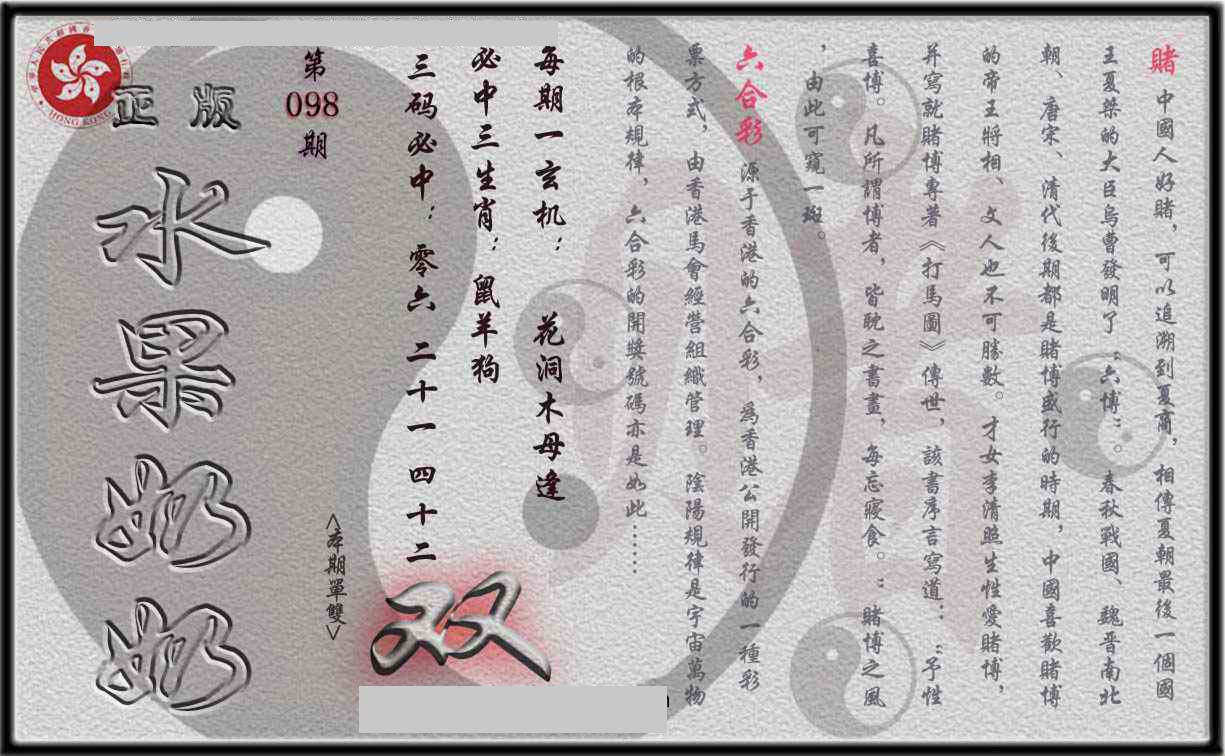 賭 中國人好賭，可以追溯到夏商，相傳夏朝最後一個國
王夏桀的大臣烏曹發明了“六博”。春秋戰國、魏晋南北
朝、唐宋、清代後期都是賭博盛行的時期，中國喜歡賭博
的帝王將相、文人也不可勝數。才女李清照生性愛賭博，
并寫就賭博專著《打馬圖》傳世，該書序言寫道：“予性
喜博。凡所謂博者，皆耽之書畫，每忘寢食。”賭博之風
，由此可窺一斑。
六合彩 源于香港的六合彩，爲香港公開發行的一種彩
票方式，由香港馬會經營組織管理。陰陽規律是宇宙萬物
的根本規律，六合彩的開獎號碼亦是如此……
每期一玄机：花洞木母逢
必中三生肖：鼠羊狗
三码必中：零六 二十一 四十二
<本期單雙>
双
第
098
期
正版
水果奶奶
HONG KONG